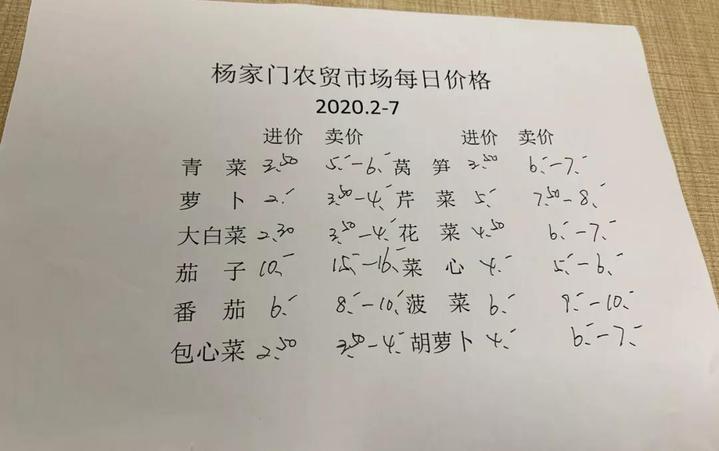 杨家门农贸市场每日价格
2020.2-7
进价 卖价 进价 卖价
青菜 3.50 5.- - 6.- 莴笋 3.50 6.- - 7.-
萝卜 2.- 3.50 - 4.- 芹菜 5.- 7.50 - 8.-
大白菜 2.30 3.50 - 4.- 花菜 4.50 6.- - 7.-
茄子 10.- 15.- - 16.- 菜心 4.- 5.- - 6.-
番茄 6.- 8.- - 10.- 菠菜 6.- 9.- - 10.-
包心菜 2.50 3.50 - 4.- 胡萝卜 4.- 6.- - 7.-